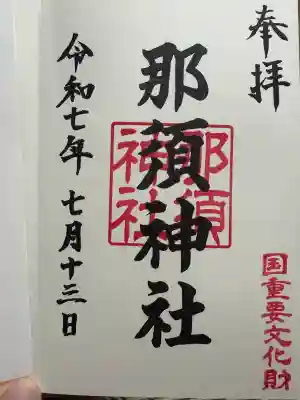 奉拝
国重要文化財
那須神社
那須
神社
令和七年 七月十三日